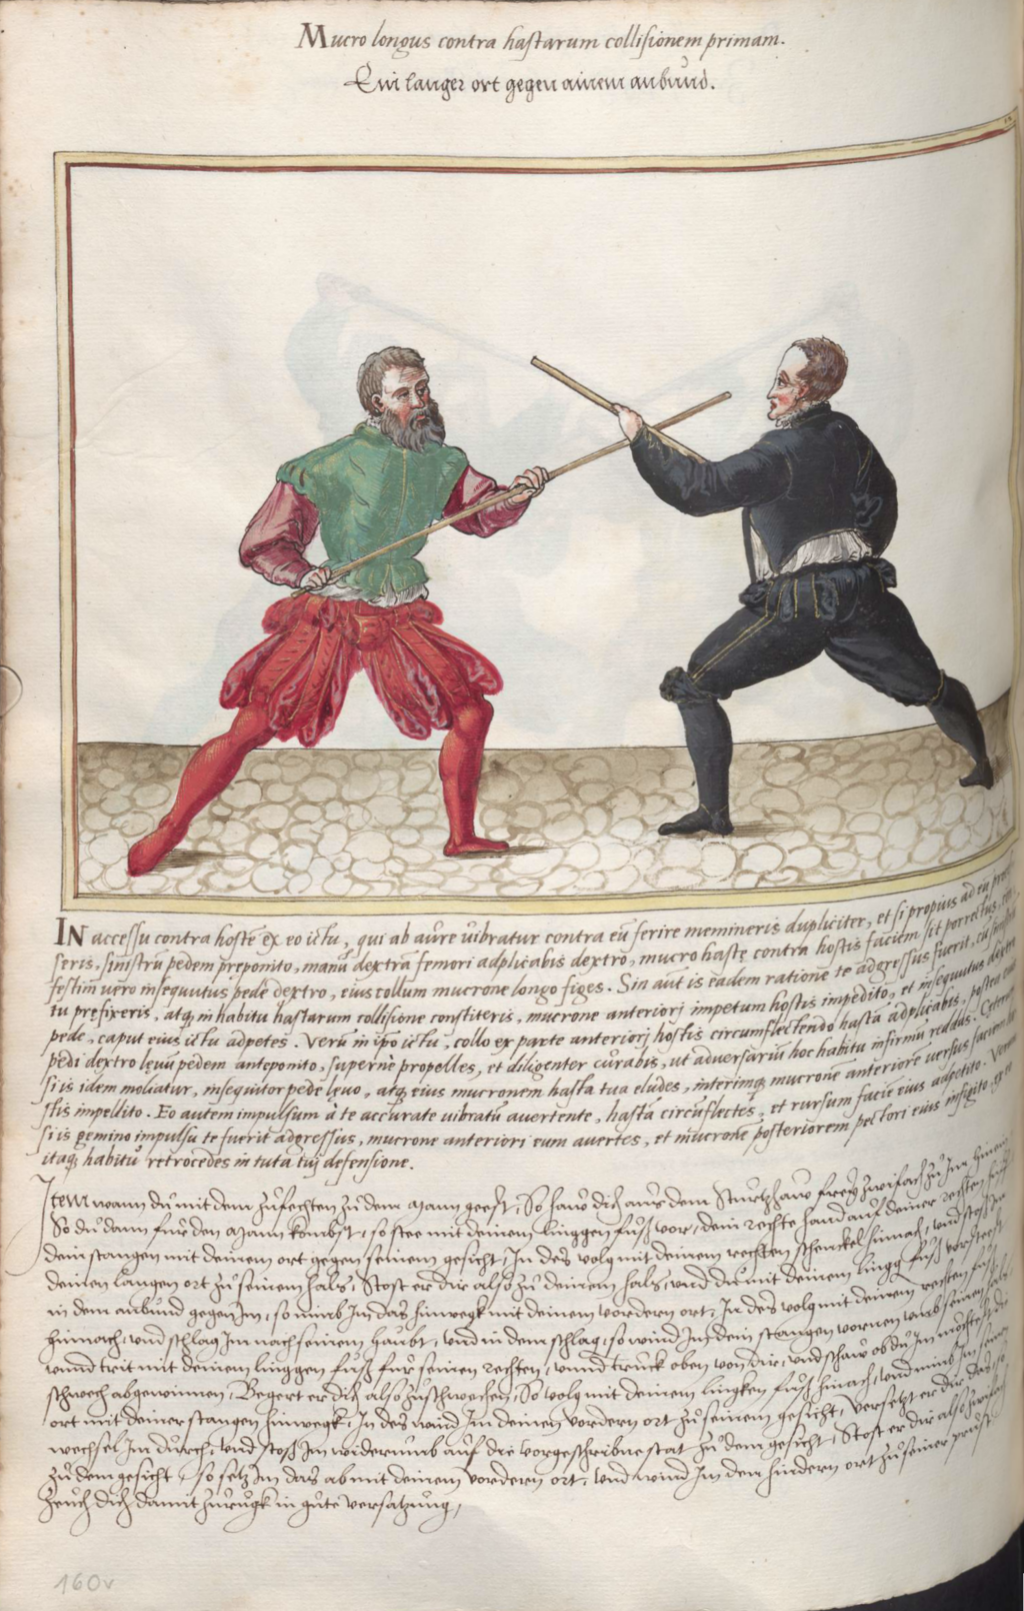 Mucro longus contra hastarum collisionem primam.
Ein langer ort gegen ainem anbund.
IN accessu contra hostē ex eo ictu, qui ab aure vibratur contra eū ferire memineris dupliciter, et si propius ad eū
seris, sinistrū pedem preponito, manū dextrā femori adplicabis dextro, mucro hastę contra hostis faciem sit porrectus,
festim vero insequutus pede dextro, eius collum mucrone longo figes. Sin aūt is eadem ratione te adgressus fuerit, cū
tu prefixeris, atq; in habitu hastarum collisione constiteris, mucrone anteriori impetum hostis impedito, et insequutus dextro
pede, caput eius ictu adpetes. Verū in ipō ictu, collo ex parte anteriori hostis circumflectendo hastā adplicabis, postea
pedi dextro lęvū pedem anteponito, supernè propelles, et diligenter curabis, ut adversariū hoc habitu infirmū reddas. Ceterum
si is idem moliatur, insequitor pede lęvo, atq; eius mucronem hasta tua eludes, interimq; mucrone anteriore versus faciem
stis impellito. Eo autem impulsum à te accurate vibratū avertente, hastā circūflectes, et rursum faciē eius adpetito. Verum
si is gemino impulsu te fuerit adgressus, mucrone anteriori eum avertes, et mucronē posteriorem pectori eius infigito,
itaq; habitu retrocedes in tuta tuj defensione.
Item wann du mit dem zufechten zu dem Mann geest, So haw dich aus dem Sturtzhaw frey zwifach zu Im hinein
So du dann für den Mann kombst, so stee mit deinem linggen fuß vor, dein rechte hand auf deiner rechten
dein stangen mit deinem ort gegen seinem gesicht, In des volg mit deinem rechten schenckel hinnach, und stoß Im
deinen Langen ort zu seinem hals, Stost er dir also zu deinem hals, und du mit deinem lingg fuß vorsteest
in dem anbund gegen Im, so nimb Im das hinwegk mit deinem vordern ort, In des volg mit deinem rechten fuß
hinnach, und schlag Im nach seinem haubt, und in dem schlag, so wind Im dein stangen vornen umb seinen hals
unnd trit mit deinem linggen fuß für seinen rechten, unnd truck oben von dir, und schaw ob du Im möchtest die
schwech abgewinnen, Begert er dich also zuschwechen, So volg mit deinem lingken fuß hinach, und nimb Im seinen
ort mit deiner stangen hinwegk, In des wind Im deinen vordern ort zu seinem gesicht, Versetzt er dir das so
wechsel Im durch, und stoß Im widerumb auf die vorgeschribne stat zu dem gesicht, Stost er dir also zwifach
zu dem gesicht, so setz Im das ab mit deinem vordern ort, und wind Im den hindern ort zu seiner prust
zeuch dich damit zurugk in gute versatzung,
160v